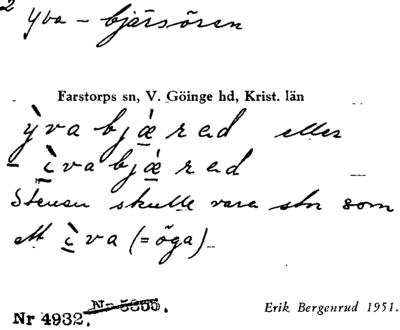 2 Yva - bjärsören
Farstorps sn, V. Göinge hd, Krist. län
ỳva bjæ̀rad eller
ìva bjæ̀rad
Stenen skulle vara stor som
ett ìva (= öga)
Nr 4932. Nr 5855.
Erik Bergenrud 1951.